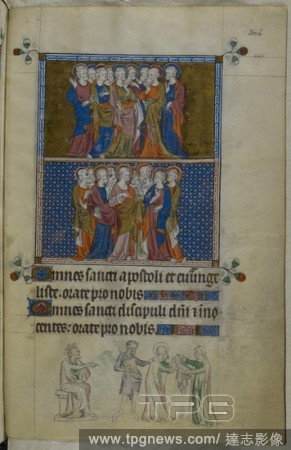 304
Omnes sancti apostoli et euuange
liste: orate pro nobis.
Omnes sancti discipuli dñi et inno
centes: orate pro nobis.
TPG
www.tpgnews.com / 達志影像